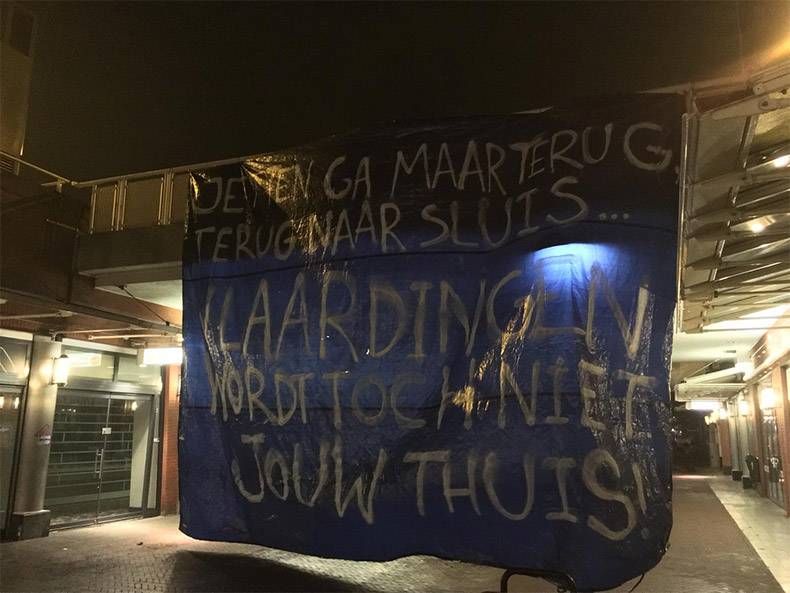 JETTEN GA MAAR TERUG,
TERUG NAAR SLUIS...
VLAARDINGEN
WORDT TOCH NIET
JOUW THUIS!